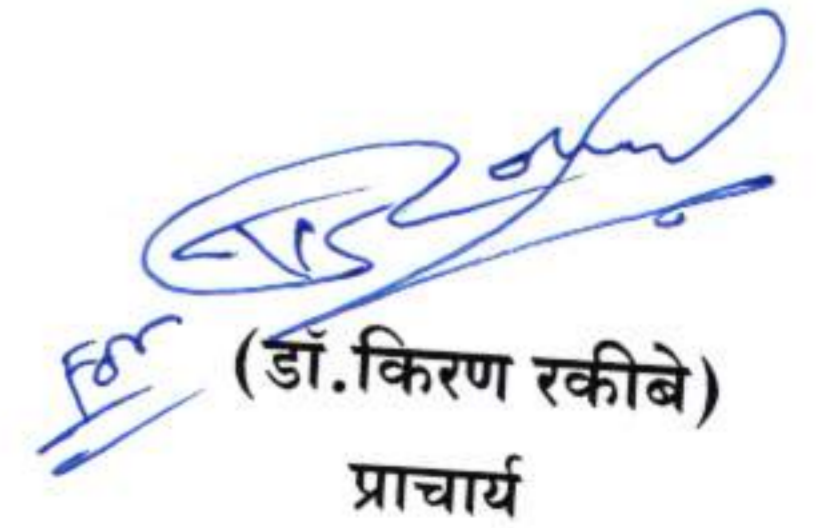 For
(डॉ.किरण रकीबे)
प्राचार्य